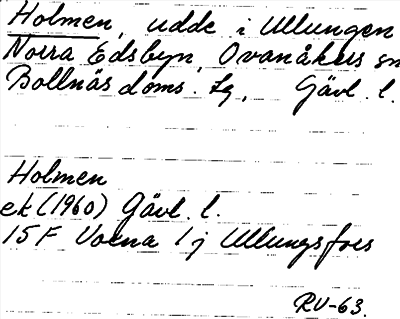 Holmen, udde i Ullungen
Norra Edsbyn, Ovanåkers sn
Bollnäs doms. tg, Gävl. l.
Holmen
ek (1960) Gävl. l.
15 F Voxna 1 j Ullungsfors
RV-63.